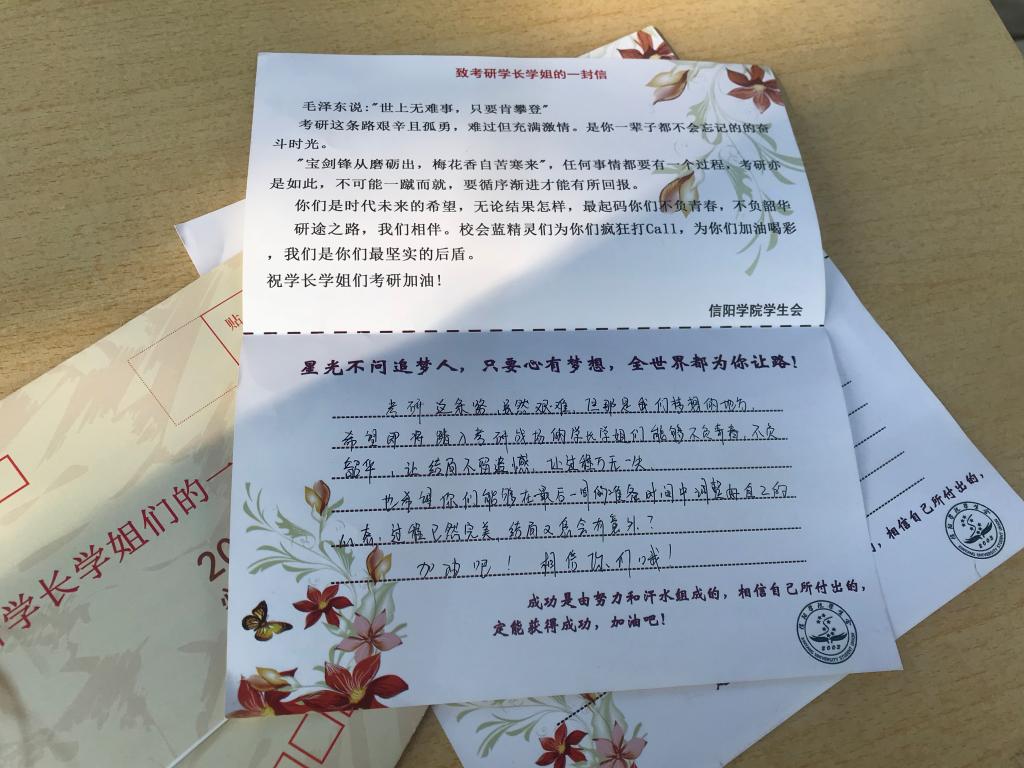 致考研学长学姐的一封信
毛泽东说:"世上无难事，只要肯攀登"
考研这条路艰辛且孤勇，难过但充满激情。是你一辈子都不会忘记的的奋
斗时光。
"宝剑锋从磨砺出，梅花香自苦寒来"，任何事情都要有一个过程，考研亦
是如此，不可能一蹴而就，要循序渐进才能有所回报。
你们是时代未来的希望，无论结果怎样，最起码你们不负青春，不负韶华
研途之路，我们相伴。校会蓝精灵们为你们疯狂打Call，为你们加油喝彩
，我们是你们最坚实的后盾。
祝学长学姐们考研加油!
信阳学院学生会
星光不问追梦人，只要心有梦想，全世界都为你让路!
考研这条路虽然艰难，但那是我们梦想的地方.
希望即将踏入考研战场的学长学姐们能够不负青春,不负
韶华,让结局不留遗憾,让过程万无一失
也希望你们能够在最后一周的准备时间中调整好自己的
心态,过程已然完美,结局又怎会有意外?
加油吧! 相信你们哦!
成功是由努力和汗水组成的，相信自己所付出的，
定能获得成功，加油吧!
2002
贴
学长学姐们的一
20
的，相信自己所付出的，
2002